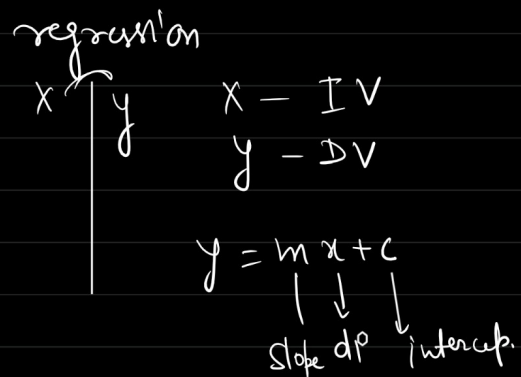 regression
X y X - IV
y - DV
y = mx + c
slope dp intercep.